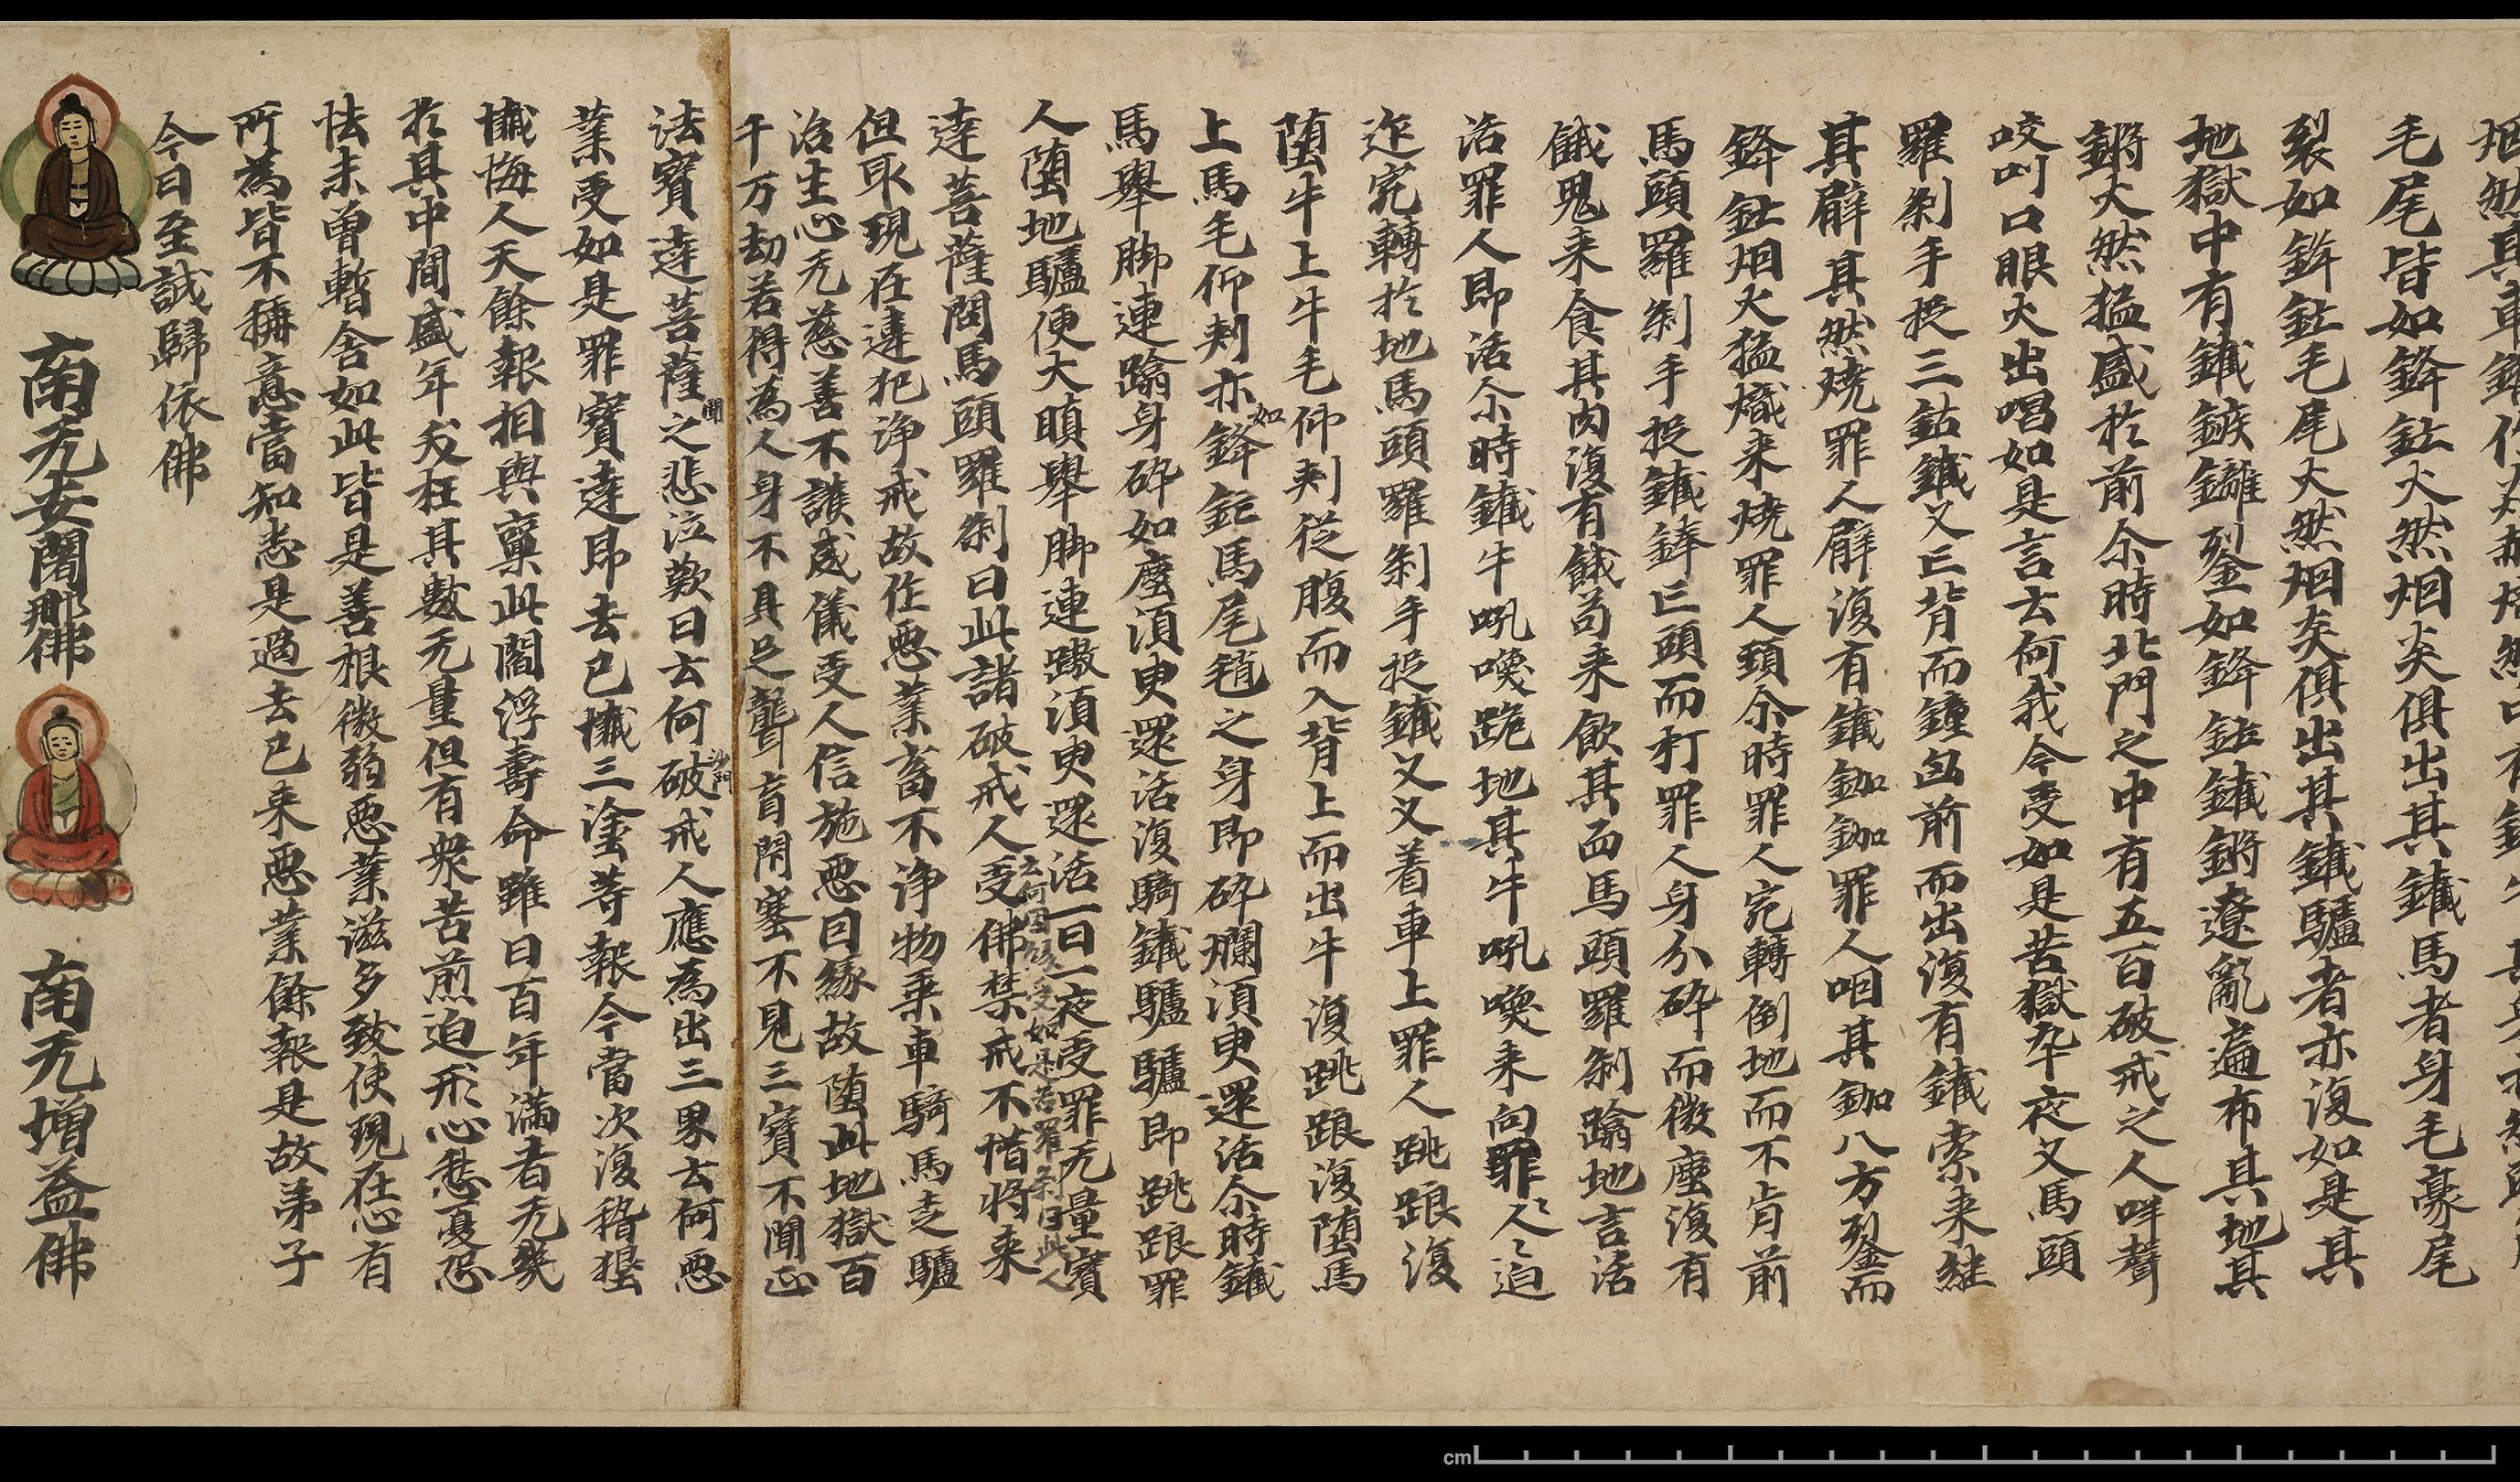 毛尾皆如鋒鈷火然烟炎俱出其鐵馬者身毛豪尾
裂如鋒鈷毛尾火然烟炎俱出其鐵驢者亦復如是其
地獄中有鐵鏃鑼㓨如鋒鈷鐵鏘遼亂遍布其地其
鏘火然猛盛於前尒時北門之中有五百破戒之人咩聲
咬叫口眼火出唱如是言云何我今受如是苦獄卒夜叉馬頭
羅剎手捉三鈷鐵叉𠤎背而鐘匈前而出復有鐵索来絓
其臂其然燒罪人臂復有鐵鉫鉫罪人咽其鉫八方㓨而
鋒鈷烟火猛熾来燒罪人頭尒時罪人宛轉倒地而不肯前
馬頭羅剎手捉鐵鋒𠤎頭而打罪人身分碎而微塵復有
餓鬼来食其肉復有餓苟来飲其血馬頭羅剎蹹地言活
活罪人即活尒時鐵牛吼喚跪地其牛吼喚来向罪〻人〻迫
迮宛轉於地馬頭羅剎手捉鐵叉叉着車上罪人跳踉復
堕牛上牛毛仰刺從腹而入背上而出牛復跳踉復堕馬
上馬毛仰刺亦如鋒鈷馬尾𣯛之身即碎爛湏臾還活尒時鐵
馬舉脚連蹹身碎如塵湏臾還活復騎鐵驢驢即跳踉罪
人堕地驢便大瞋舉脚連蹴湏臾還活一日一夜受罪无量寶
云何因縁受如是苦羅剎曰此人
達菩薩問馬頭羅剎曰此諸破戒人受佛禁戒不惜將来
但取現在違犯淨戒故作惡業畜不淨物乗車騎馬走驢
治生心无慈善不讃威儀受人信施惡因縁故堕此地獄百
千万劫若得為人身不具足聾盲閇塞不見三寶不聞正
法寶達菩薩聞之悲泣歎曰云何破戒沙門人應為出三界云何惡
業受如是罪寶達即去已懴三塗䓁報今當次復稽𩒨
懴悔人天餘報相與稟此閻浮壽命雖曰百年滿者无幾
於其中間盛年夭枉其數无量但有衆苦煎迫形心愁憂恐
怯未曽暫舍如此皆是善根微弱惡業滋多致使現在心有
所為皆不稱意當知悉是過去已来惡業餘報是故弟子
今日至誠歸依佛
南无安闍那佛
南无增益佛